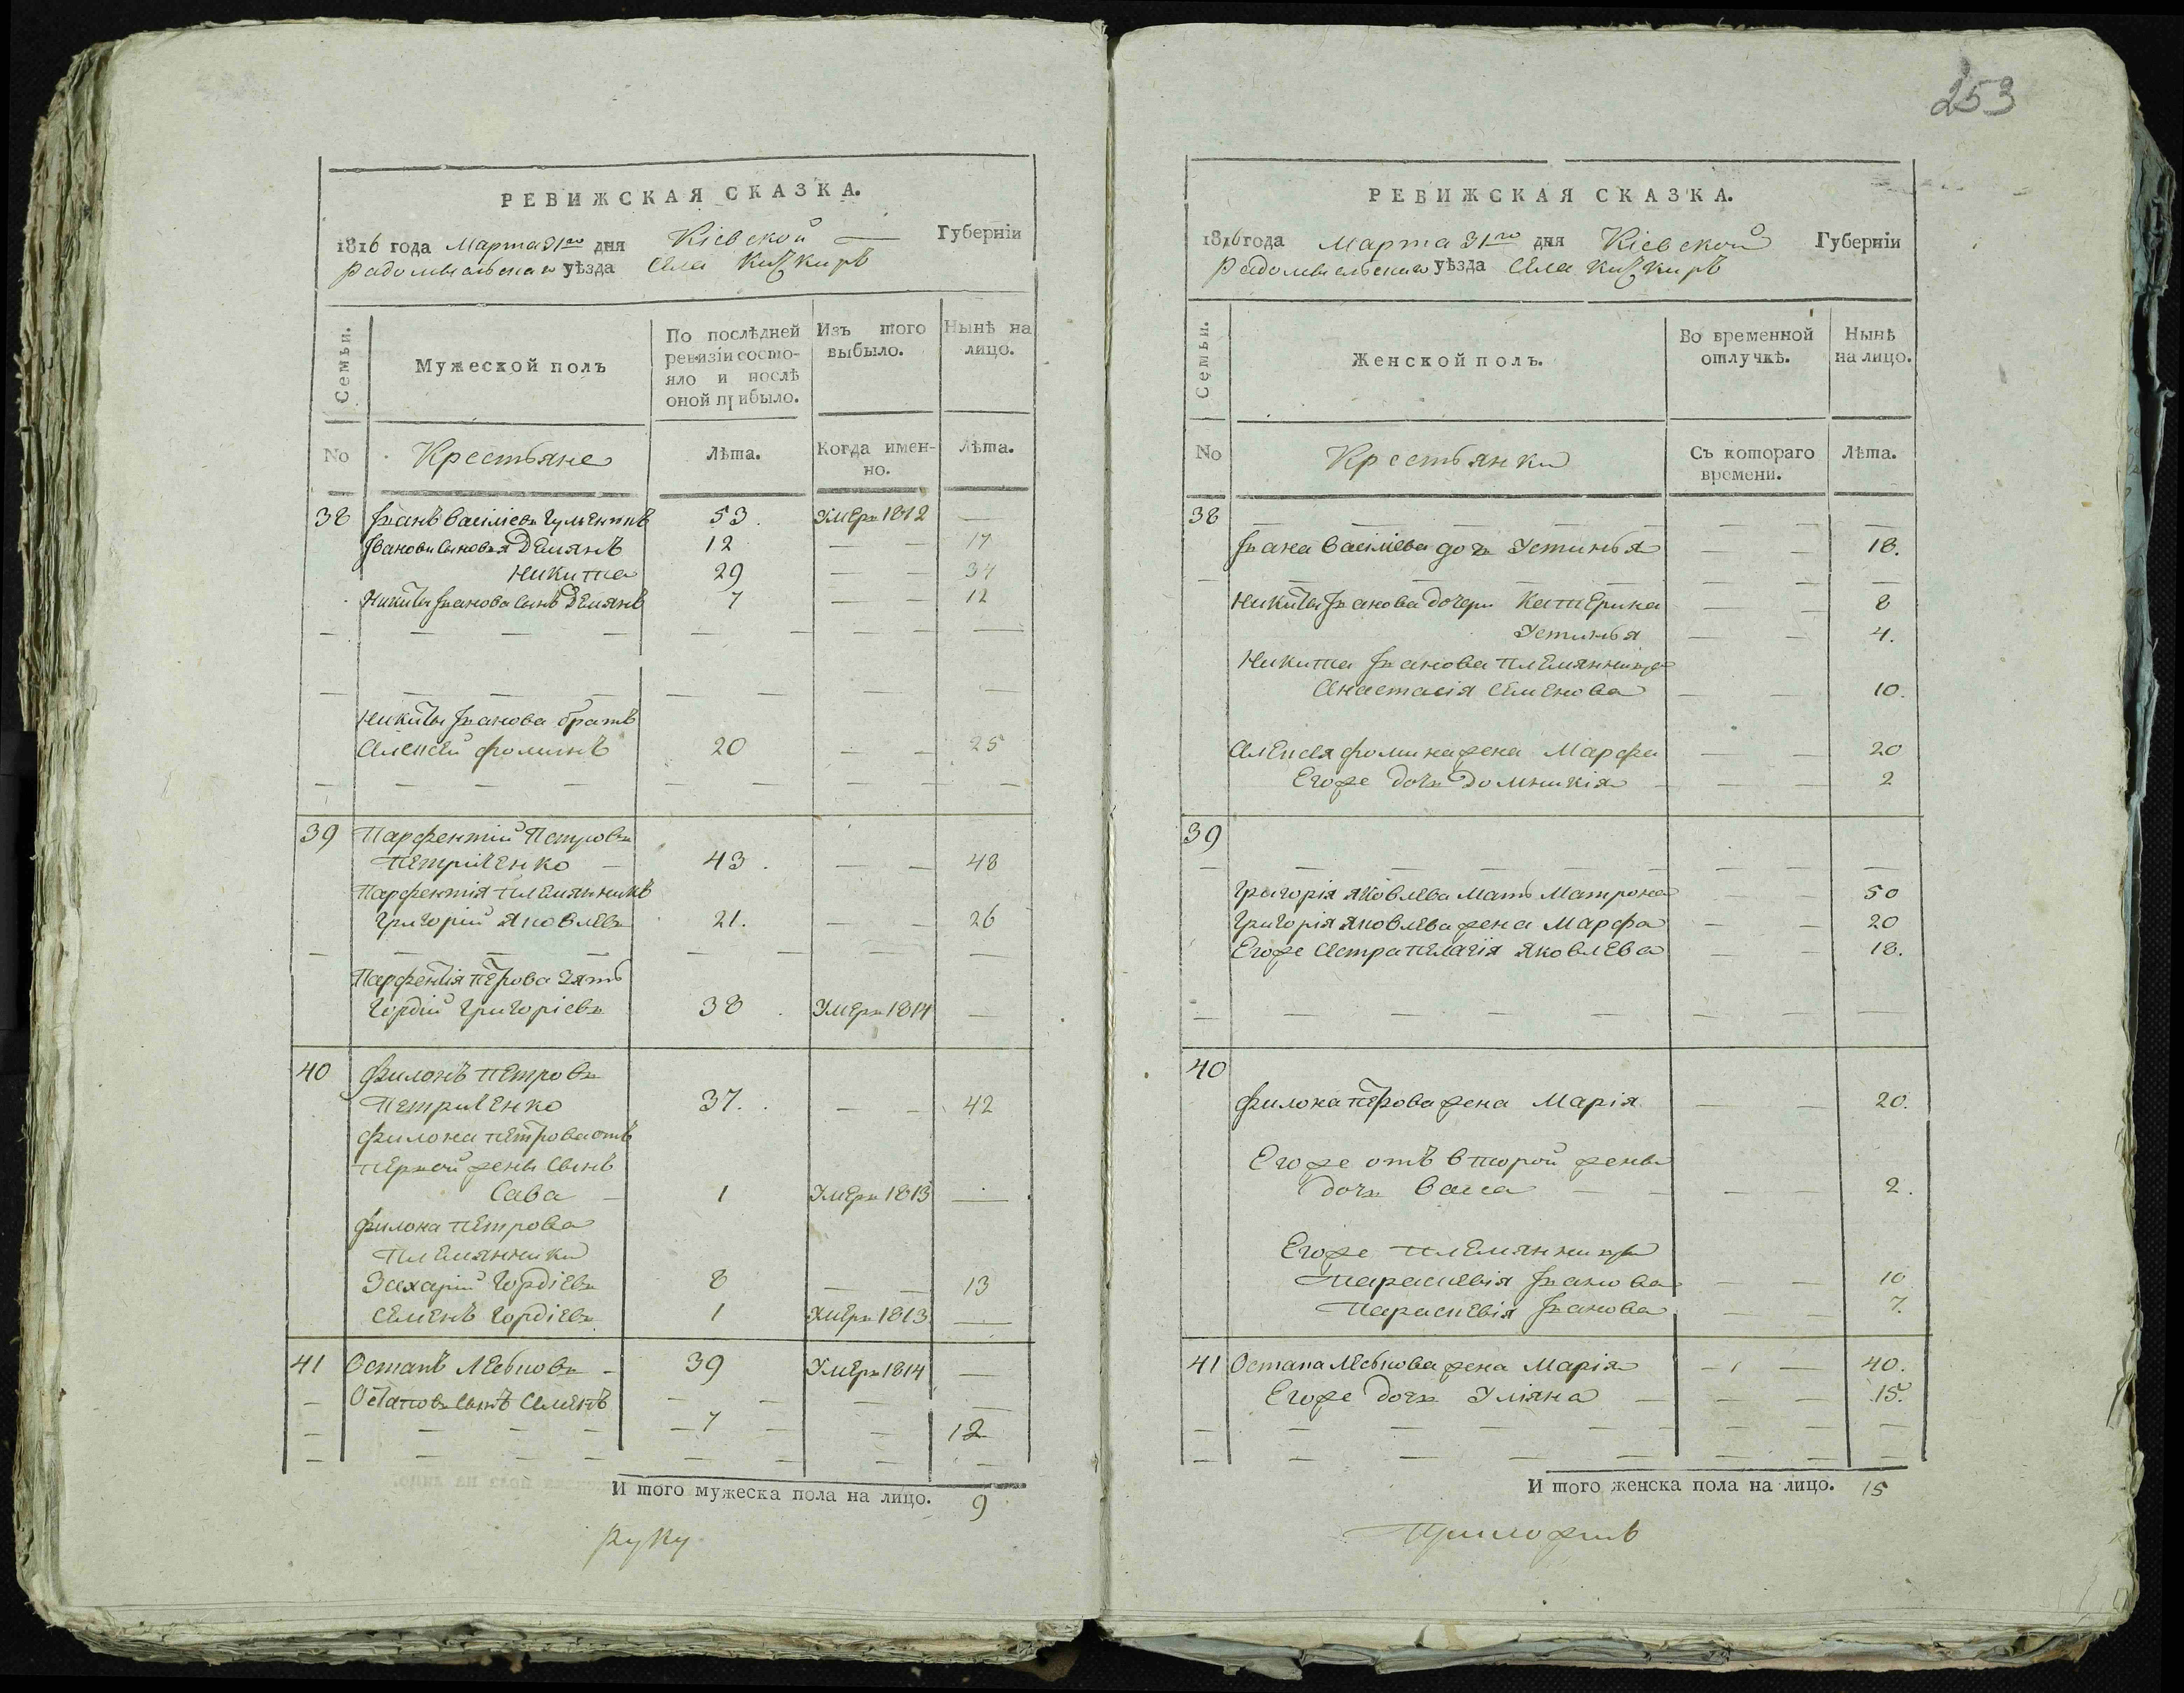 РЕВИЖСКАЯ СКАЗКА.
1816 года Марта 31го дня Кіевской Губерніи
Радомысльскаго уѣзда Села
Семьи.
Мужеской полъ
По послѣдней ревизіи состо-
яло и послѣ
оной прибыло.
Изъ того
выбыло.
Нынѣ на
лицо.
No Крестьяне Лѣта. Когда имен-
но. Лѣта.
38 Іванъ Василіевъ 53. Умеръ 1812 —
Івановы Сыновья Демянъ 12 — — 17
Никита 29 — — 34
Никиты Іванова Сынъ Демянъ 7 — — 12
Никиты Іванова братъ
Алексей Фоминъ 20 — — 25
39 Парфентій Петровъ
Петриченко — 43. — — 48
Парфентія племянникъ
Григорій Яковлевъ 21. — — 26
Парфентія Петрова Зять
Гордій Григоріевъ 38. Умеръ 1814 —
40 Филонъ Петровъ
Петриченко 37. — — 42
Филона Петрова отъ
первой жены Сынъ
Сава — 1 Умеръ 1813 —
Филона Петрова
племянники
Захарій Гордіевъ 8 — — 13
Семенъ Гордіевъ 1 Умеръ 1813 —
41 Остапъ Леськовъ — 39 Умеръ 1814 —
Остаповъ Сынъ Семенъ
7 12
И того мужеска пола на лицо. 9
Руку
253
РЕВИЖСКАЯ СКАЗКА.
1816 года Марта 31го дня Кіевской Губерніи
Радомысльскаго уѣзда Села
Семьи.
Женской полъ.
Во временной
отлучкѣ.
Нынѣ
на лицо.
No Крестьянки Съ котораго
времени. Лѣта.
38
Івана Василіева дочь Устинья — — 18.
Никиты Іванова дочери Катерина — — 8
Устинья — — 4.
Никита Іванова племянница
Анастасія Семенова — — 10.
Алексея Фомина жена Марфа — — 20
Егоже дочь Домникія — — 2
39
Григорія Яковлева Мать Матрона — — 50
Григорія Яковлева жена Марфа — — 20
Егоже Сестра Пелагія Яковлева — — 18.
40
Филона Петрова жена Марія — — 20.
Егоже отъ второй жены
дочь Васса — — 2.
Егоже племянницы
Параскевія Іванова — — 10
Параскевія Іванова — — 7.
41 Остапа Леськова жена Марія — — 40.
Егоже дочь Уліяна — — 15.
И того женска пола на лицо. 15
Приложилъ